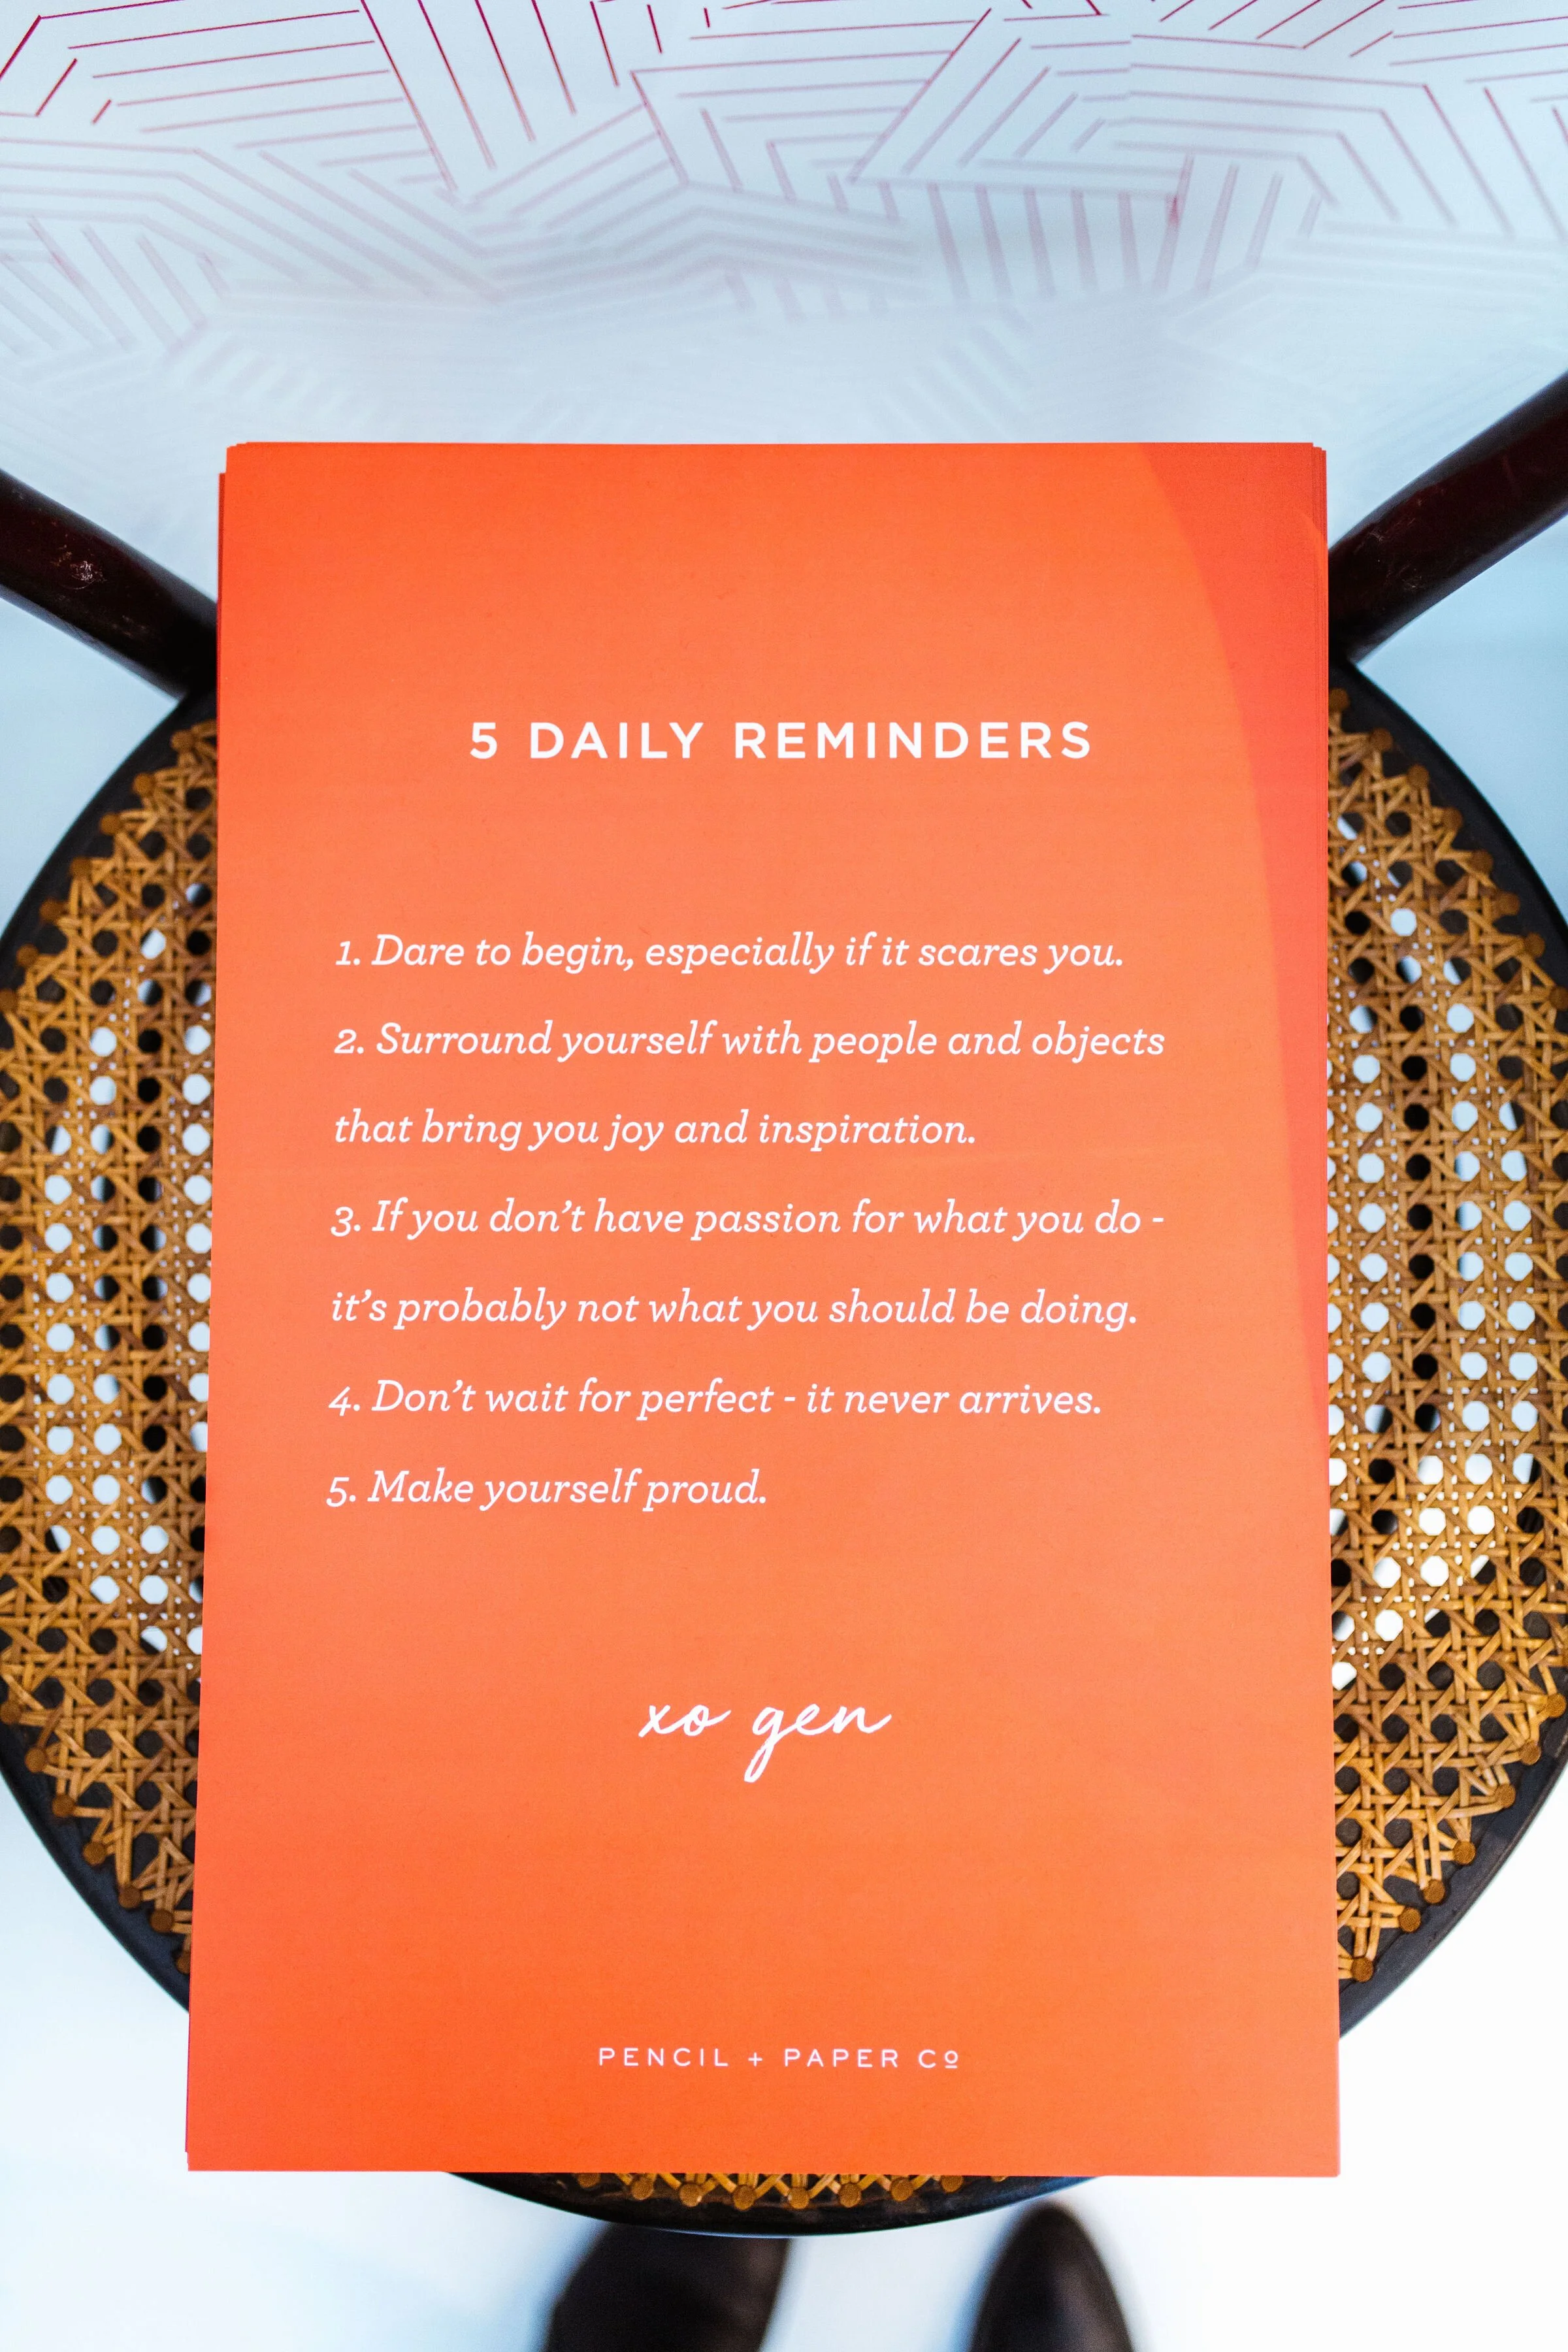 5 DAILY REMINDERS
1. Dare to begin, especially if it scares you.
2. Surround yourself with people and objects
that bring you joy and inspiration.
3. If you don’t have passion for what you do -
it’s probably not what you should be doing.
4. Don’t wait for perfect - it never arrives.
5. Make yourself proud.
xo gen
PENCIL + PAPER Cº